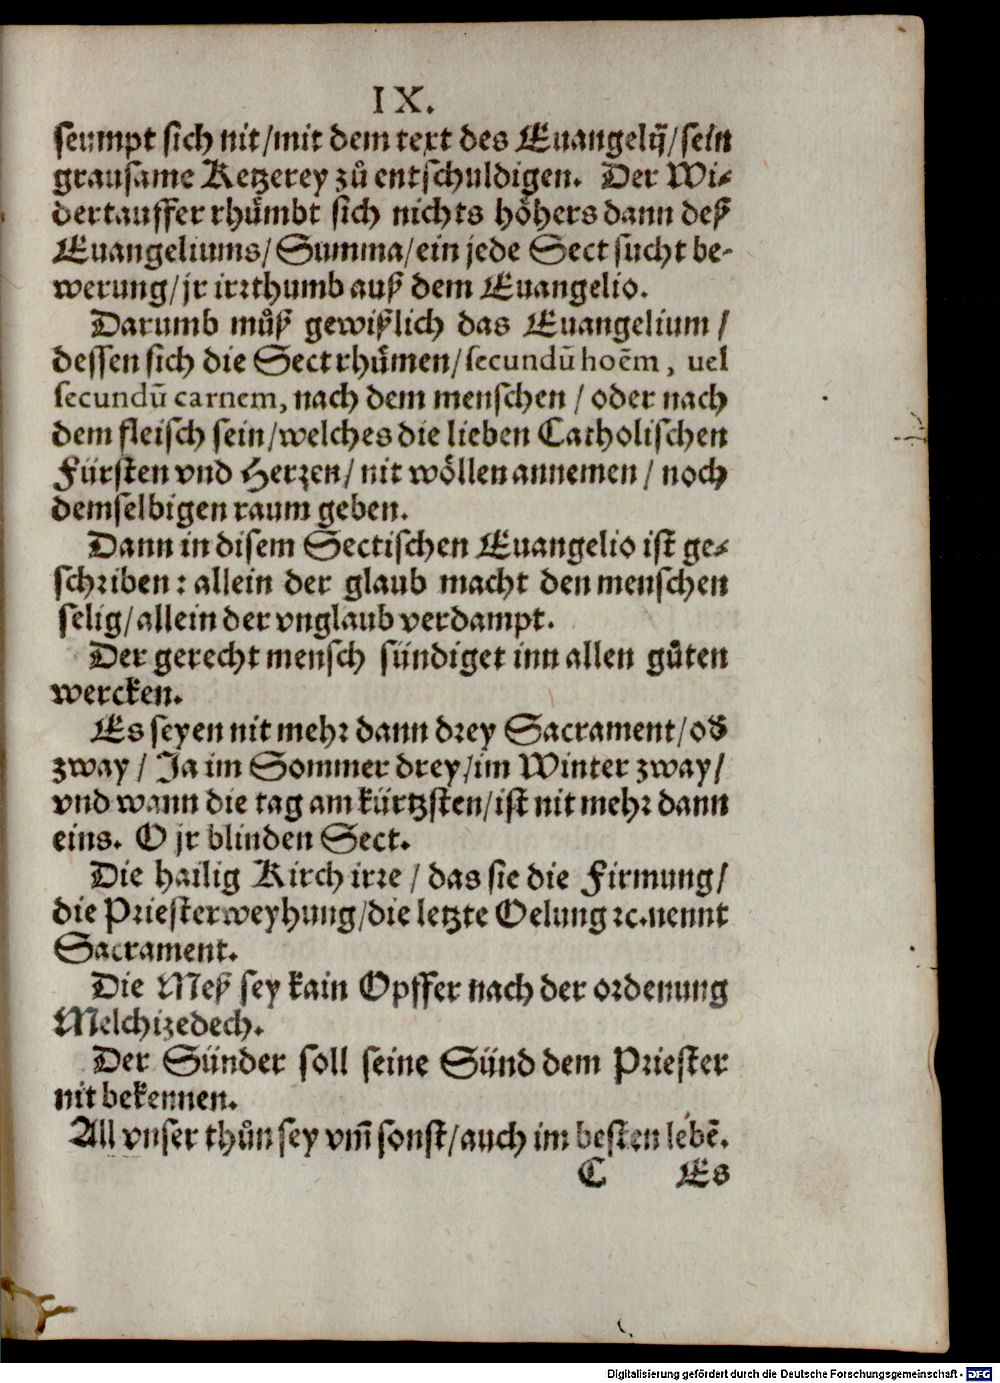 IX.
seumpt sich nit/mit dem text des Euangelij/sein
grausame Ketzerey zů entschuldigen. Der Wi-
dertauffer rhůmbt sich nichts höhers dann deß
Euangeliums/Summa/ein jede Sect sucht be-
werung/jr irrthumb auß dem Euangelio.
Darumb můß gewißlich das Euangelium/
dessen sich die Sect rhůmen/secundū hoēm, uel
secundū carnem, nach dem menschen/oder nach
dem fleisch sein/welches die lieben Catholischen
Fürsten vnd Herren/nit wöllen annemen/noch
demselbigen raum geben.
Dann in disem Sectischen Euangelio ist ge-
schriben: allein der glaub macht den menschen
selig/allein der vnglaub verdampt.
Der gerecht mensch sündiget inn allen gůten
wercken.
Es seyen nit mehr dann drey Sacrament/od
zway/Ja im Sommer drey/im Winter zway/
vnd wann die tag am kürtzsten/ist nit mehr dann
eins. O jr blinden Sect.
Die hailig Kirch irre/das sie die Firmung/
die Priesterweyhung/die letzte Oelung ꝛc. nennt
Sacrament.
Die Meß sey kain Opffer nach der ordenung
Melchizedech.
Der Sünder soll seine Sünd dem Priester
nit bekennen.
All vnser thůn sey vm̄ sonst/auch im besten lebē.
C Es
Digitalisierung gefördert durch die Deutsche Forschungsgemeinschaft - DFG